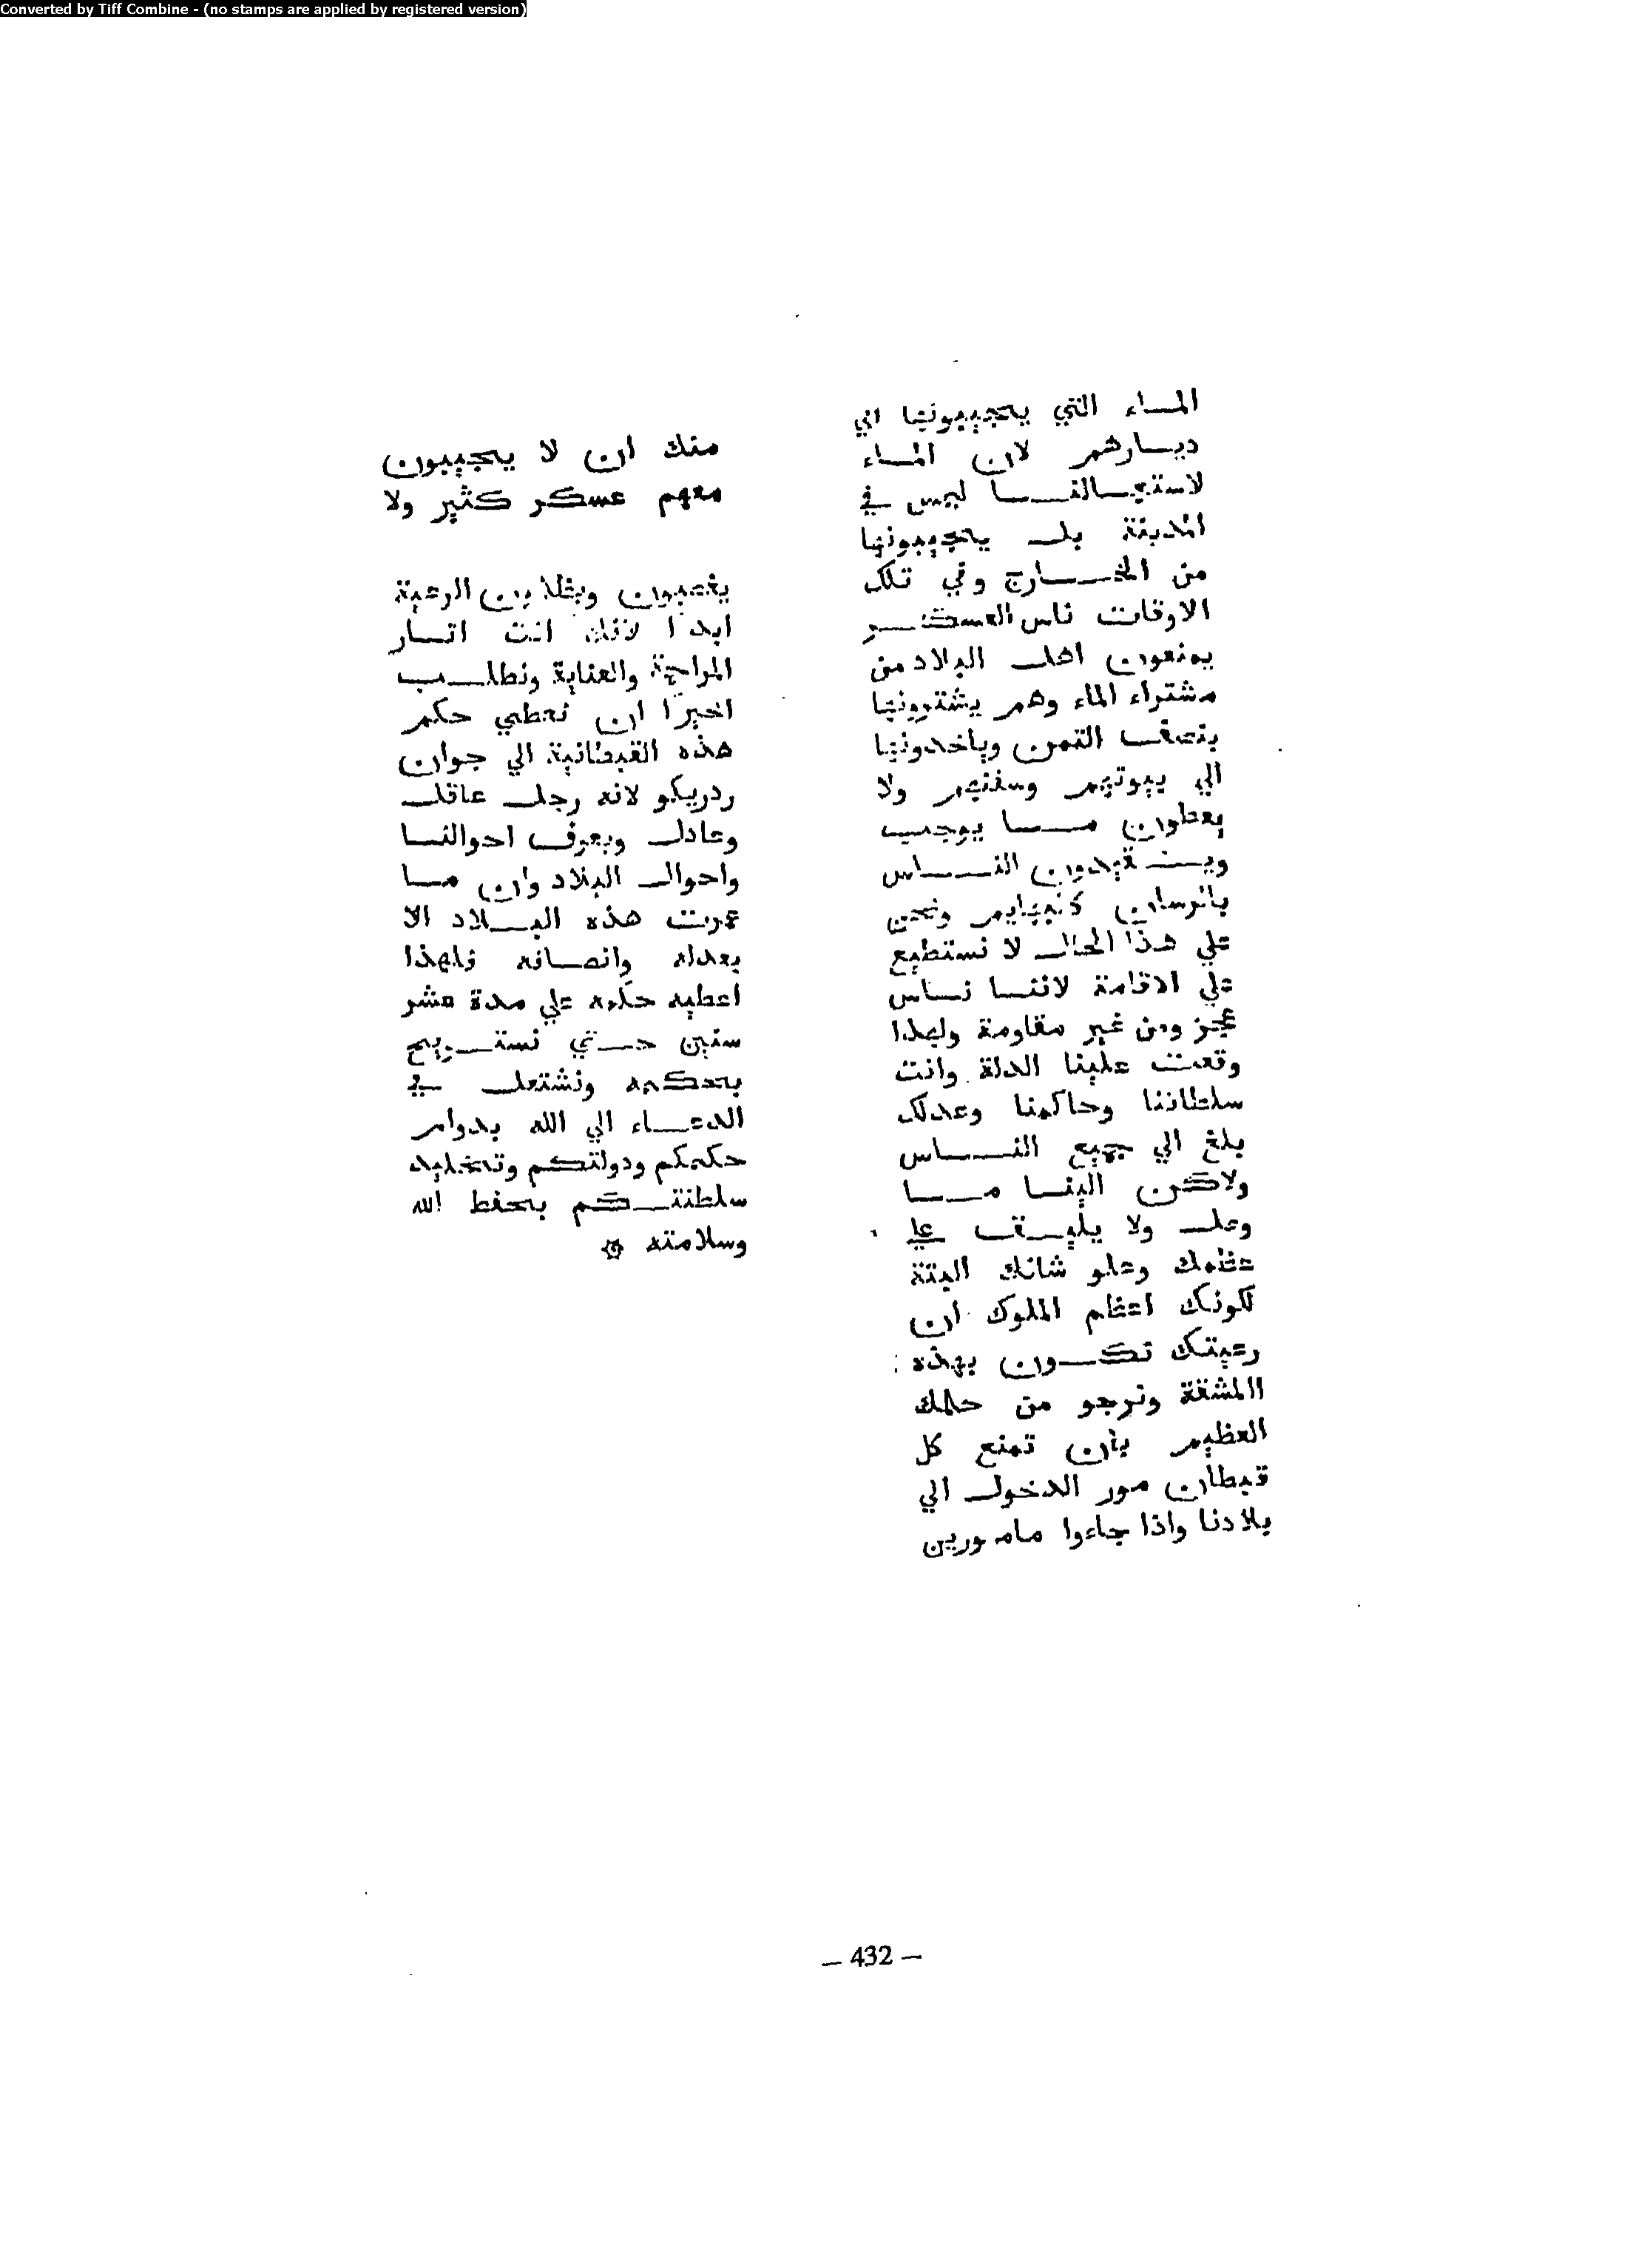 Converted by Tiff Combine - (no stamps are applied by registered version)
المساء التي يجيبونها الي
ديارهم لان المساء
لاستعمالنا ليس في
المدينة بل يجيبونها
من الخارج وفي تلك
الاوقات ناس العسكر
يمنعون اهل البلاد من
مشتراء الماء وهم يشترونها
بنصف الثمن وياخدونها
الي بيوتهم وسفنهم ولا
يعطون ما يوجب
الناس
ونحن
علي هذا الحال لا نستطيع
علي الاقامة لاننا ناس
عجز ومن غير مقاومة ولهذا
وقعت علينا الدلة وانت
سلطاننا وحاكمنا وعدلك
بلغ الي جميع الناس
ولاكن الينا ما
وصل ولا يليق علي
عظمك وعلو شانك البتة
لكونك اعظم الملوك ان
رعيتك تكون بهذه
المشقة ونرجو من حلمك
العظيم بأن تمنع كل
قبطان مور الدخول الي
بلادنا واذا جاءوا مامورين
منك ان لا يجيبون
معهم عسكر كثير ولا
يغصبون الرعية
ابدا لانك انت
والعناية ونطلب
اخيرا ان تعطي حكم
هذه القبطانية الي جوان
ردريكو لانه رجل عاقل
وعادل ويعرف احوالنا
واحوال البلاد وان ما
عمرت هذه البلاد الا
بعدله وانصافه فلهذا
اعطيه حكمه علي مدة عشر
سنين حتي نستريح
بحكمه ونشتغل في
الدعاء الي الله بدوام
حكمكم ودولتكم وتخليد
سلطنتكم بحفظ الله
وسلامته ۞
— 432 —